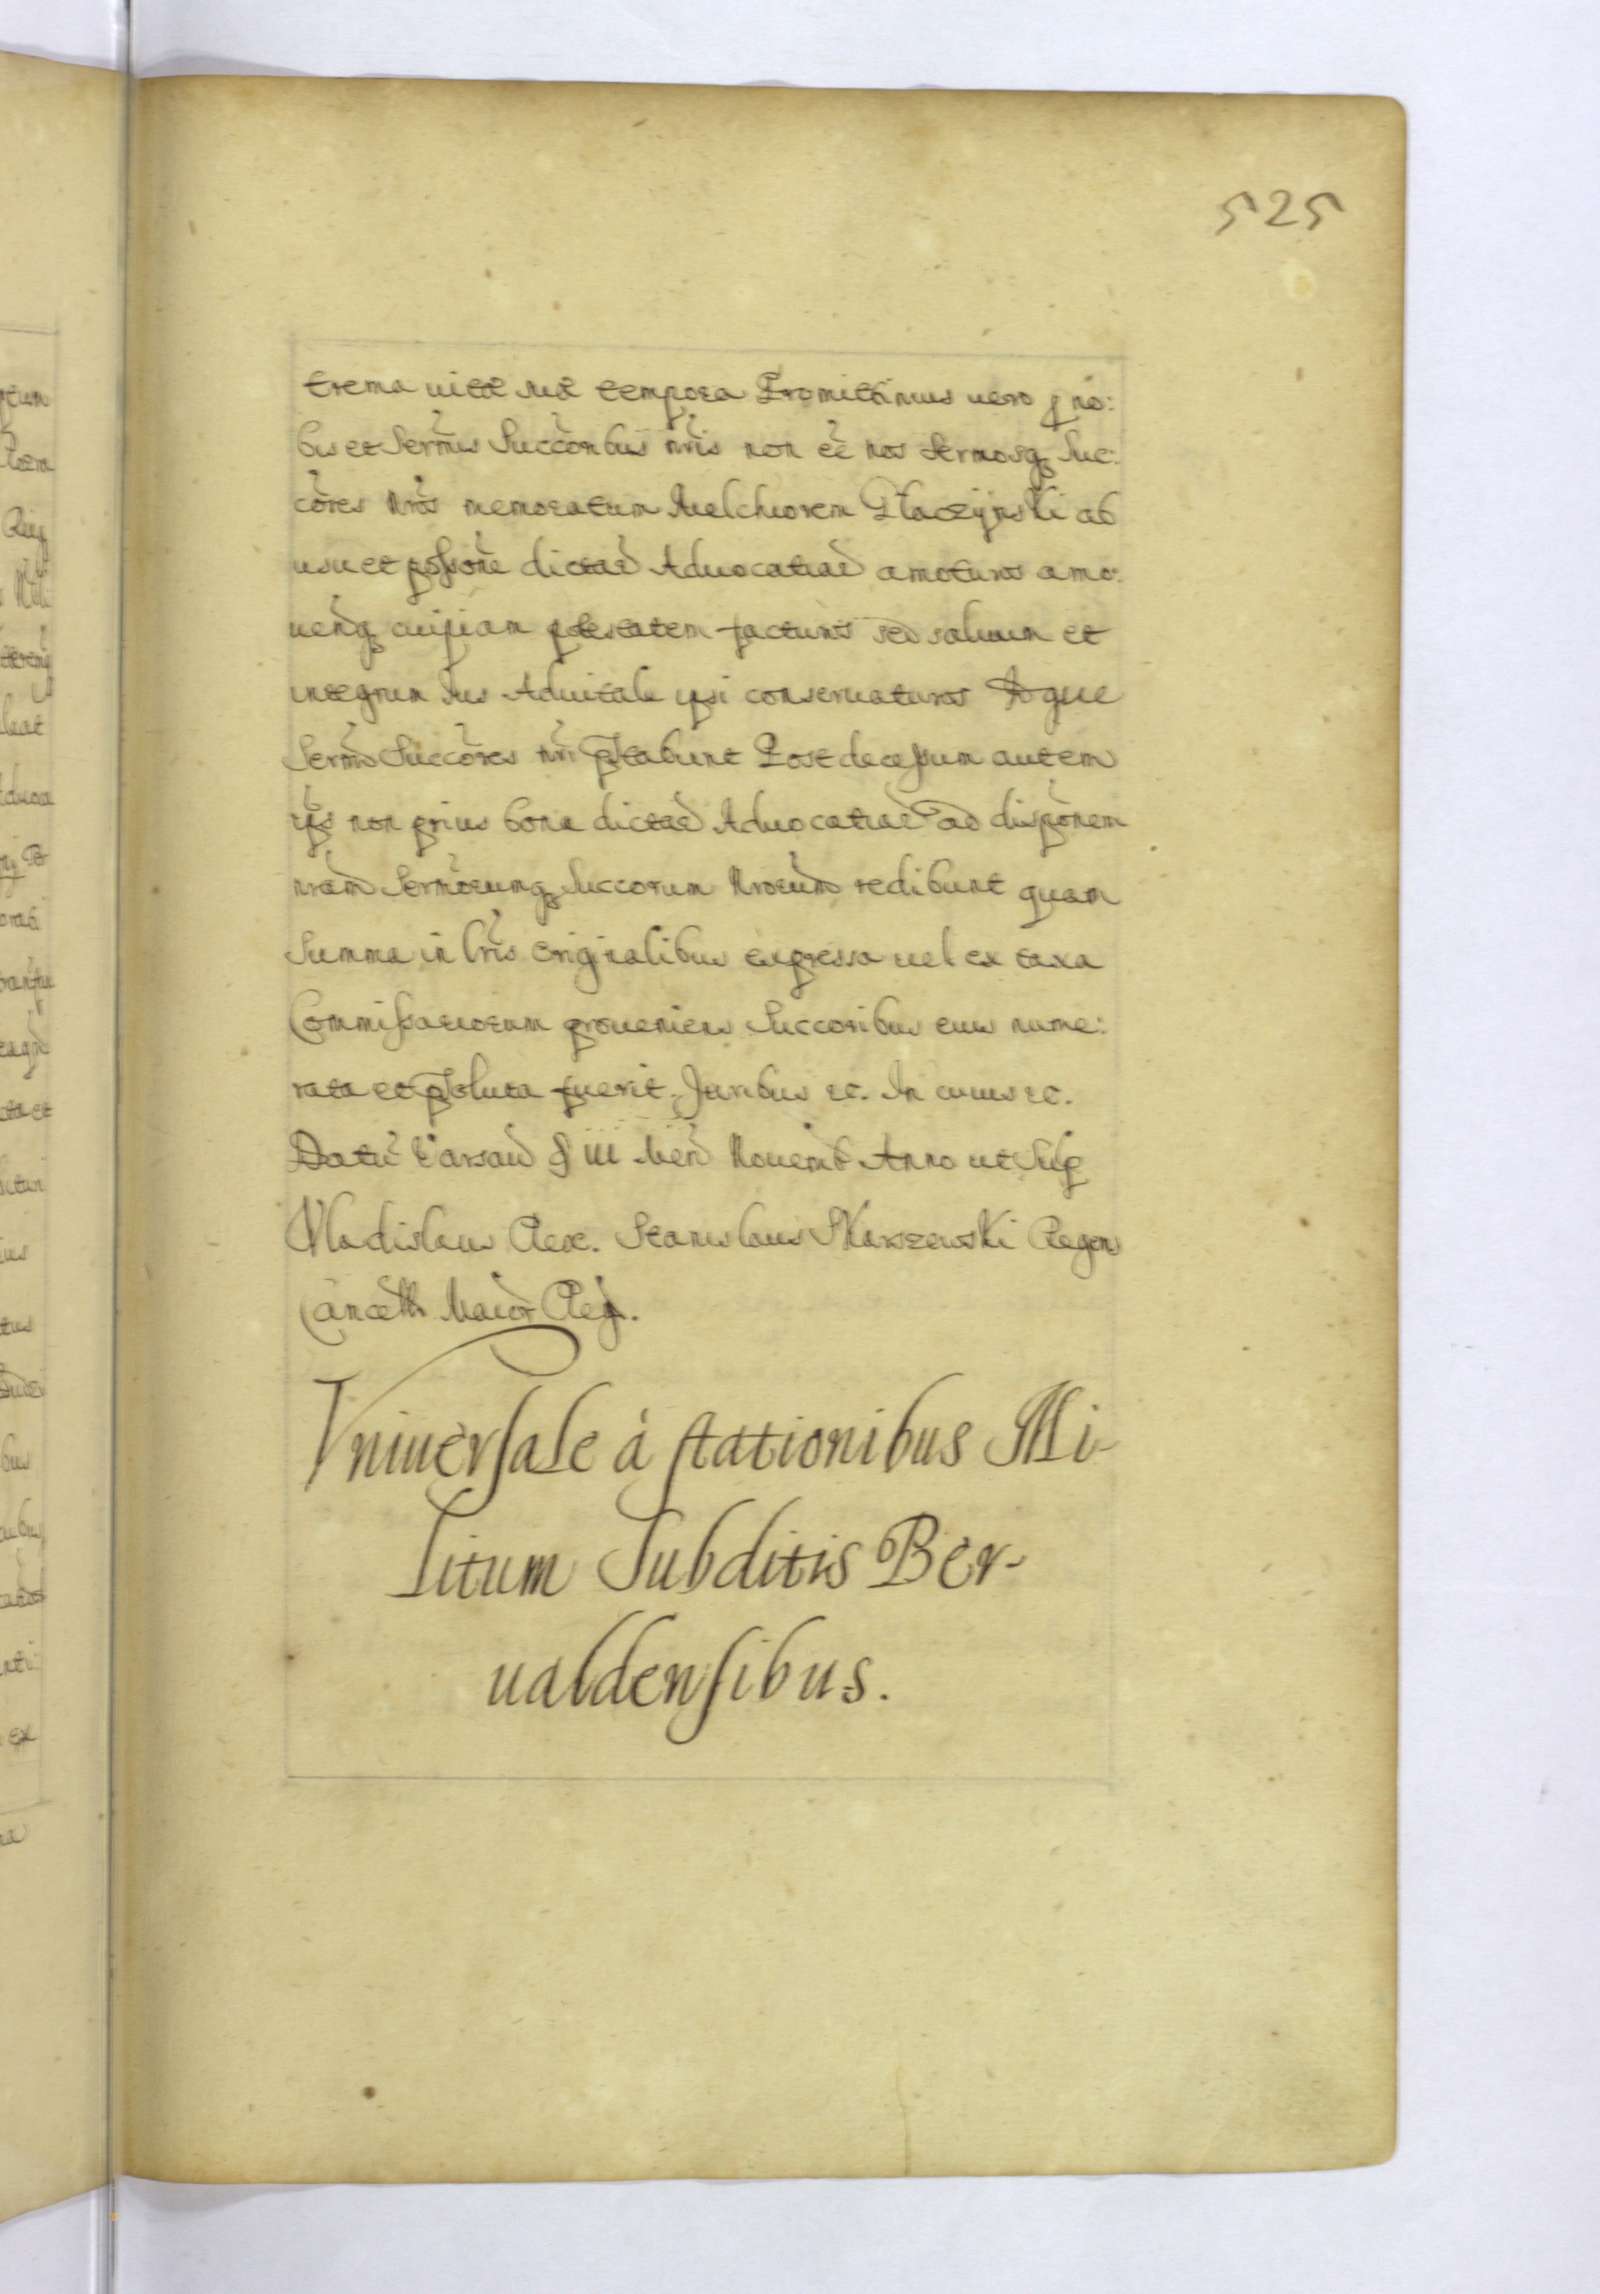 525
trema uitæ suæ tempora Promittimus uero p no:
bis et Serm̃is Succoribus nris non eē nos Sermosq Suc:
cores Nros memoratum Melchiorem Płaczÿnski ab
usu et possone dictae Aduocatiae amoturos amo:
uendq cuipiam potestatem facturos sed saluum et
integrum Ius Aduitale ipsi conseruaturos Idque
Sermi Succores nri pstabunt Post decessum autem
ips non prius bona dictae Aduocatiae ad disponem
nram Sermorumq Succorum Nrorum redibunt quam
Summa in lris originalibus expressa uel ex taxa
Commissariorum proueniens Succoribus eius nume:
rata et psoluta fuerit. Juribus ec. In cuius ec.
Datū Varsaū d iii Men Nouemb Anno ut Sup
Vladislaus Rex. Stanislaus Skarszewski Regens
Cancell Maior Reg.
Vniuersale á stationibus Mi-
litum Subditis Ber-
ualdensibus.